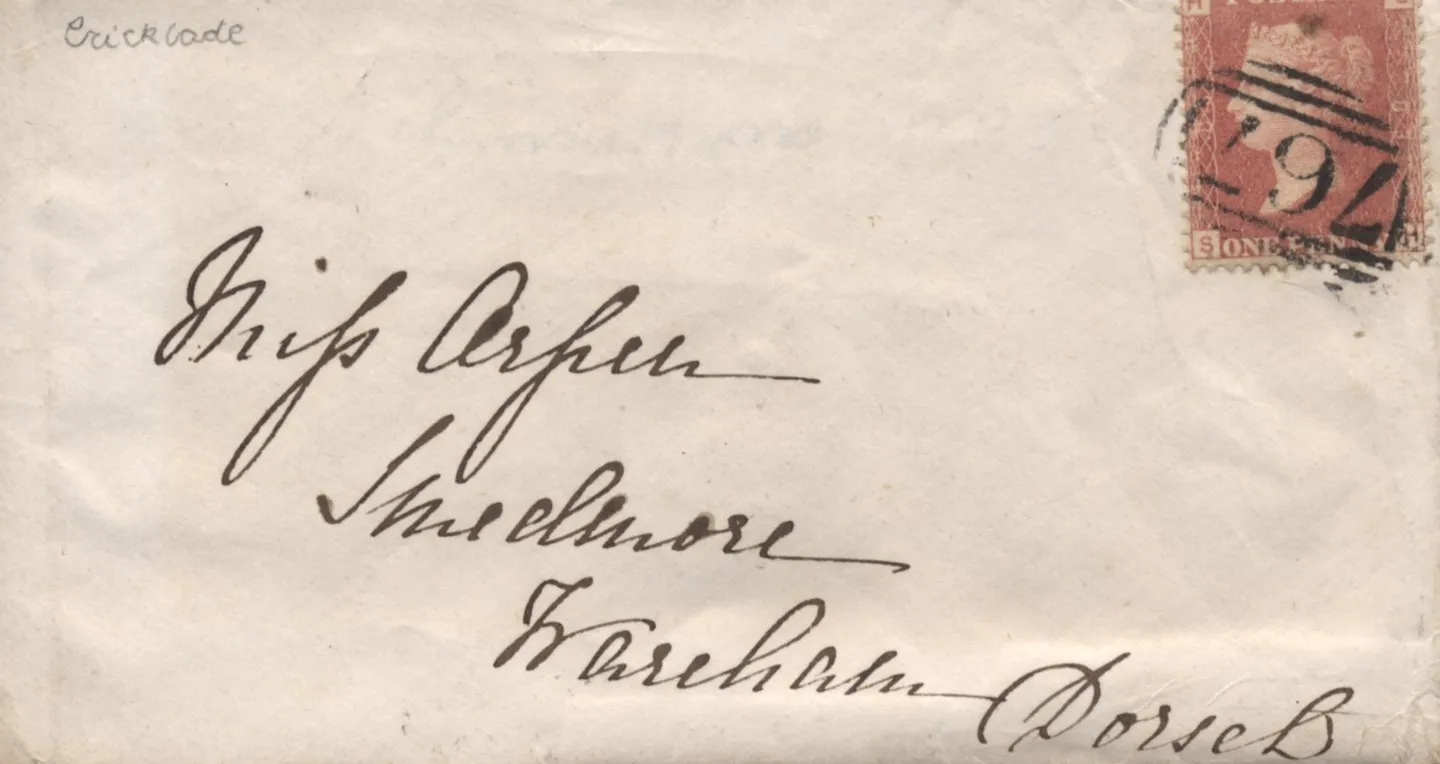 Cricklade
H POSTAGE S
S ONE PENNY H
Miss
Smedmore
Wareham
Dorset